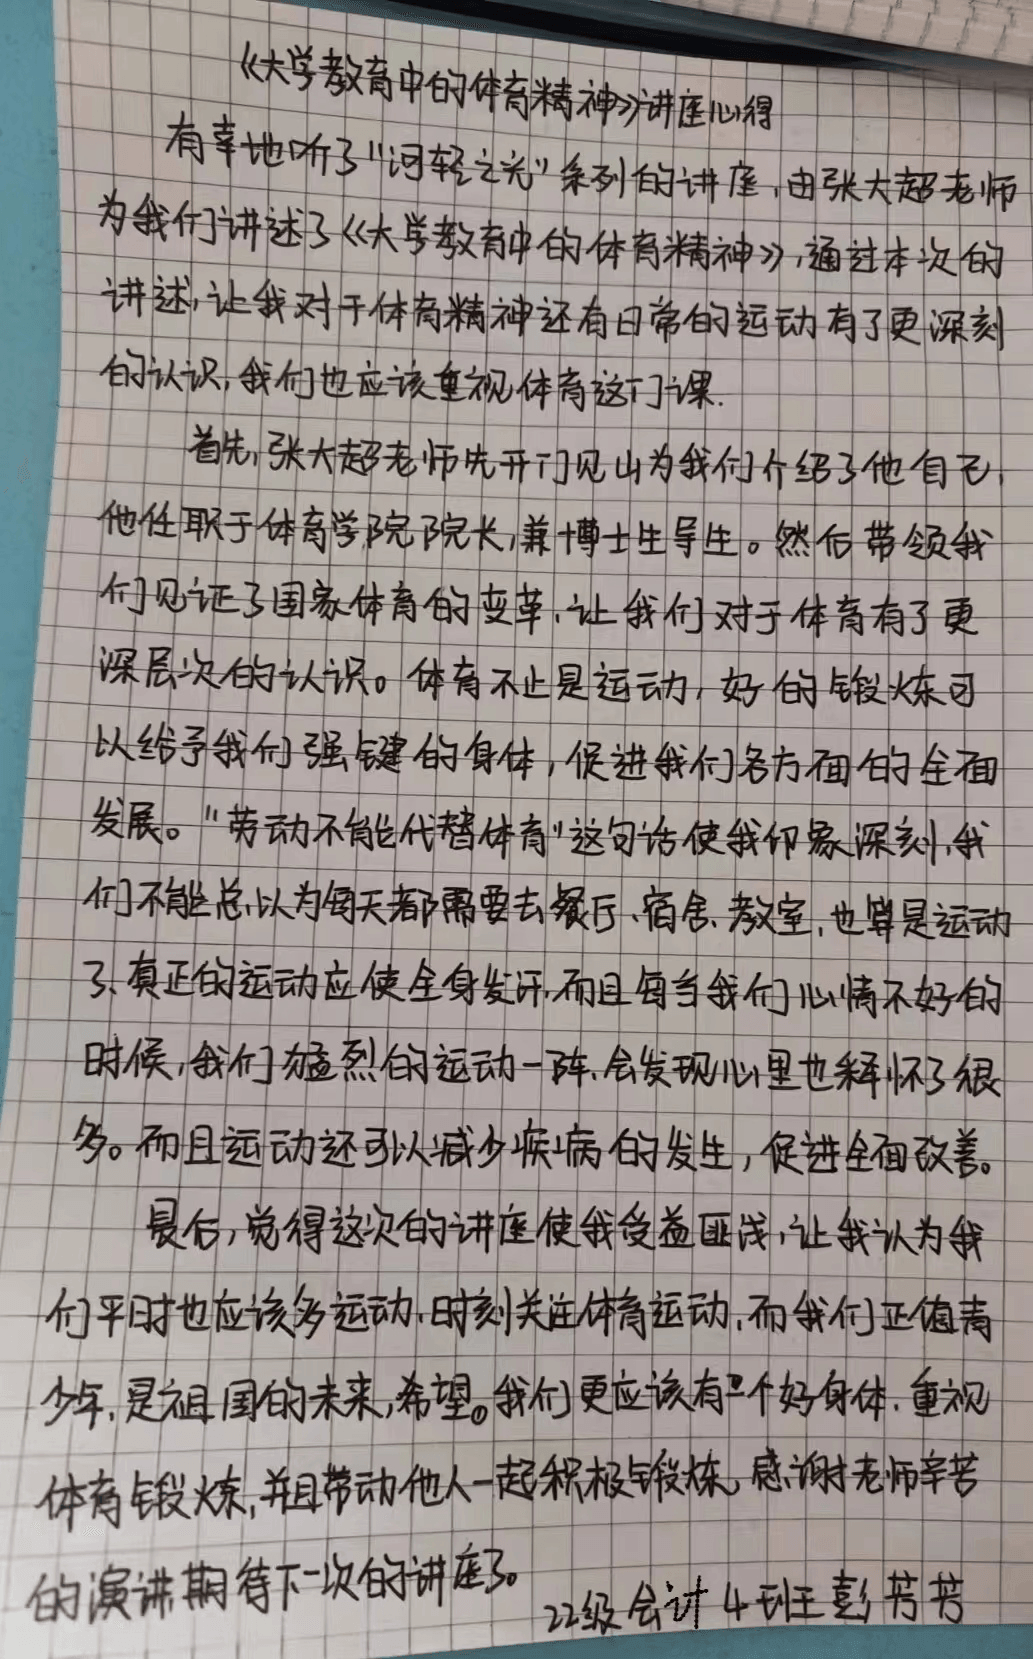 《大学教育中的体育精神》讲座心得
有幸地听了“河轻之光”系列的讲座，由张大超老师
为我们讲述了《大学教育中的体育精神》，通过本次的
讲述，让我对于体育精神还有日常的运动有了更深刻
的认识，我们也应该重视体育这门课.
首先，张大超老师先开门见山为我们介绍了他自己，
他任职于体育学院院长，兼博士生导生。然后带领我
们见证了国家体育的变革，让我们对于体育有了更
深层次的认识。体育不止是运动，好的锻炼可
以给予我们强键的身体，促进我们各方面的全面
发展。“劳动不能代替体育”这句话使我印象深刻，我
们不能总以为每天都需要去餐厅、宿舍、教室，也算是运动
了、真正的运动应使全身发汗，而且每当我们心情不好的
时候，我们猛烈的运动一阵、会发现心里也释怀了很
多。而且运动还可以减少疾病的发生，促进全面改善。
最后，觉得这次的讲座使我受益匪浅，让我认为我
们平时也应该多运动，时刻关注体育运动，而我们正值青
少年，是祖国的未来，希望。我们更应该有一个好身体，重视
体育锻炼，并且带动他人一起积极锻炼，感谢老师辛苦
的演讲期待下一次的讲座了。
22级会计4班王彭芳芳